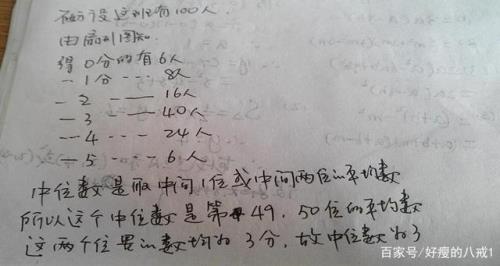 不妨设这班有100人.
由扇形图知
得0分的有6人
— 1分 --- 8人
— 2 —— 16人
— 3 —— 40人
— 4 --- 24人
— 5 -- 6人
中位数是取中间1位或中间两位的平均数
所以这个中位数是第49.50位的平均数
这两个位置的数均为3分,故中位数为3
百家号/好瘦的八戒1